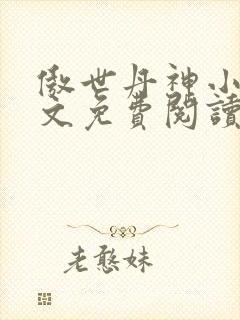 傲世丹神小
文免費閱讀
老憨妹